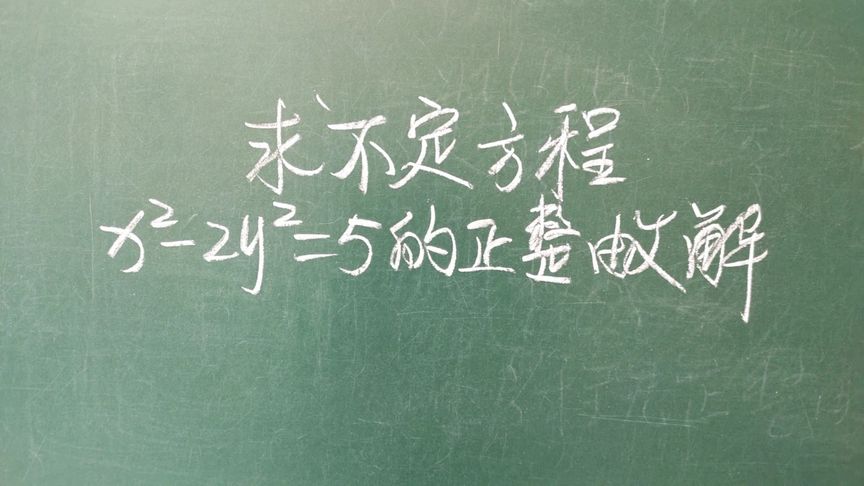 求不定方程
x²-2y²=5的正整数解